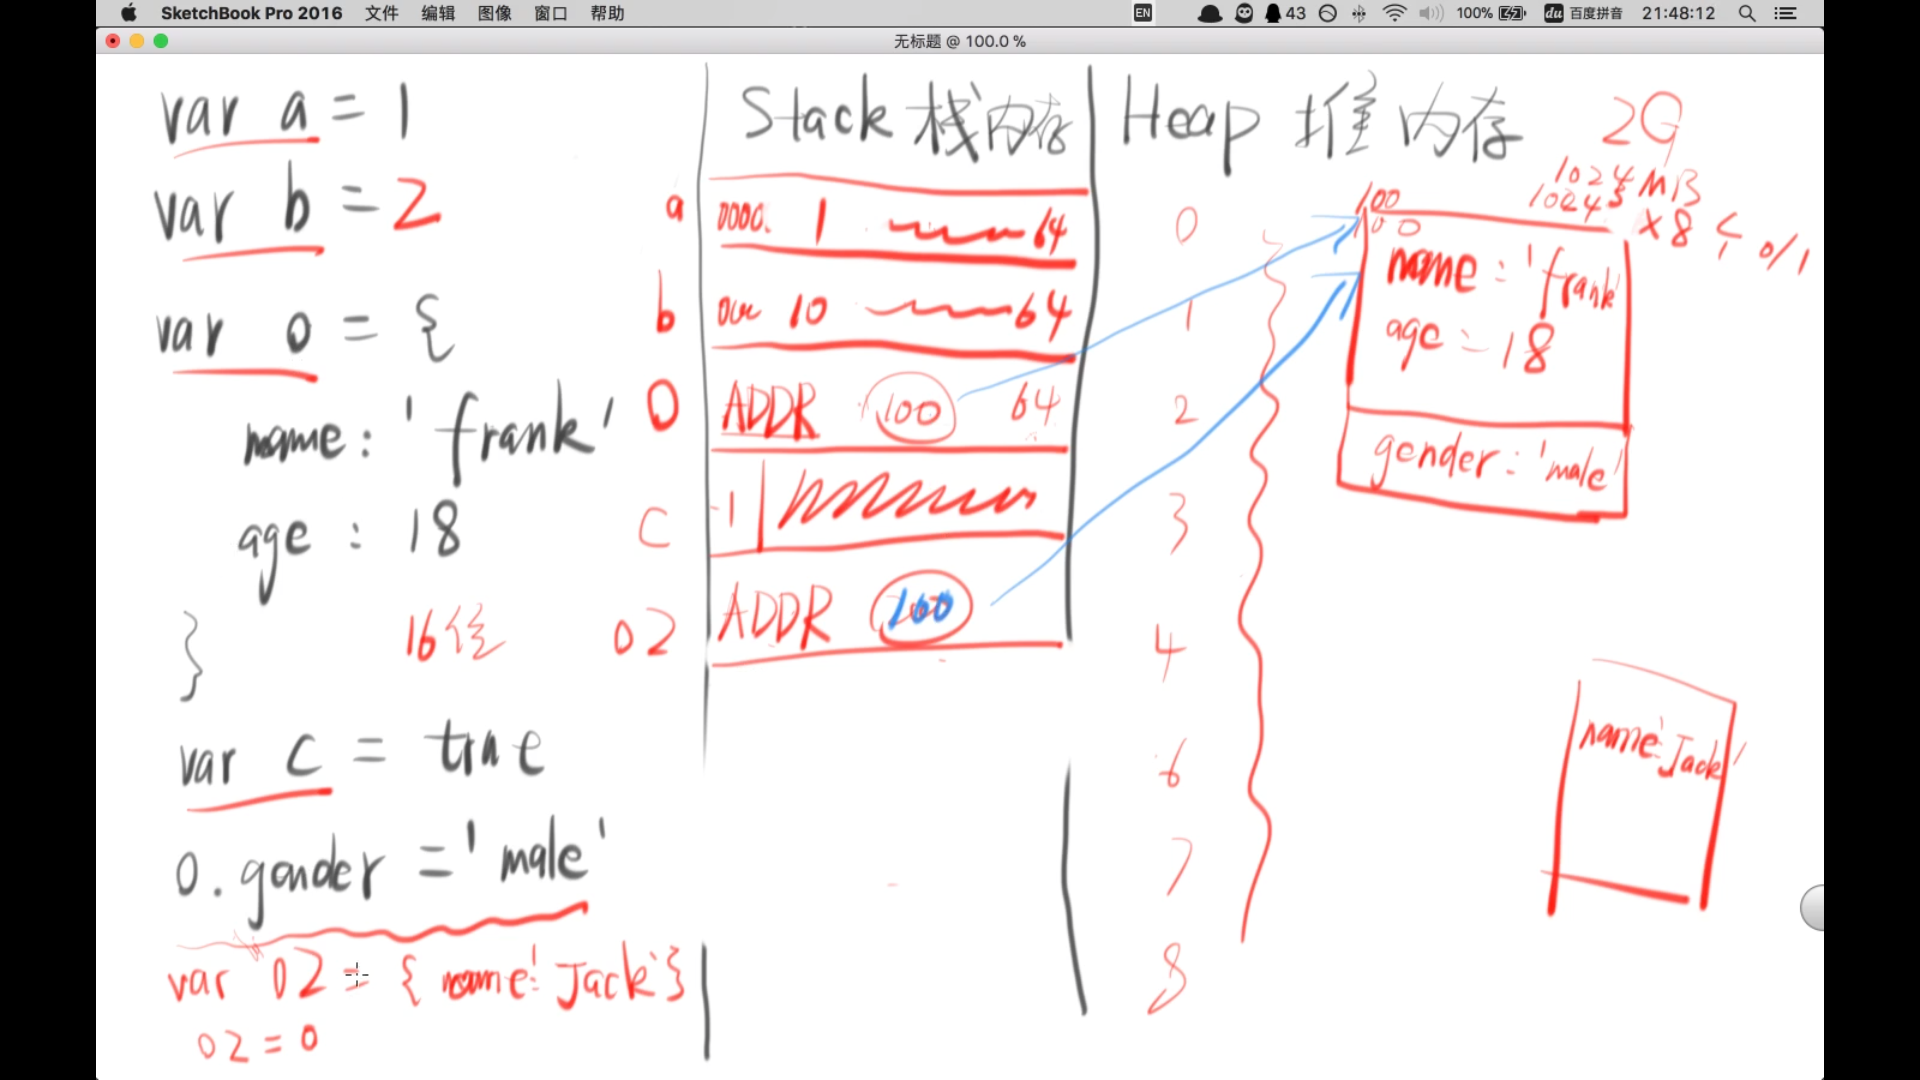 SketchBook Pro 2016 文件 编辑 图像 窗口 帮助 EN 43 100% du 百度拼音 21:48:12
无标题 @ 100.0 %
var a = 1
var b = 2
var o = {
name: 'frank'
age : 18
}
16位
var c = true
o.gender = 'male'
var o2 = { name: 'Jack' }
o2 = o
Stack 栈内存
a 0000. 1 64
b 10 64
o ADDR 100 64
c 1
o2 ADDR 100
Heap 堆内存 2G
1024 MB
1024
x 8 0/1
0
1
2
3
4
6
7
8
100
100
name : 'frank'
age : 18
gender : 'male'
name: 'Jack'